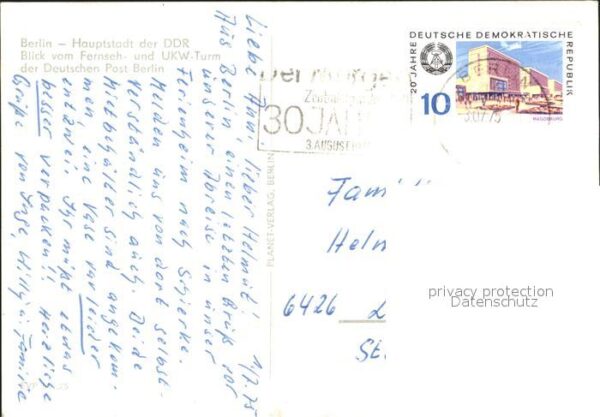 Berlin – Hauptstadt der DDR
Blick vom Fernseh- und UKW-Turm
der Deutschen Post Berlin
1/7.75
Liebe Anni, lieber Helmut!
Aus Berlin einen letzten Gruß vor
unserer Abreise in unser
Ferienheim nach Schierke.
Melden uns von dort selbst-
verständlich auch. Beide
sind angekom-
men eine Vase war leider
entzwei. Ihr müßt etwas
besser verpacken!! Herzliche
Grüße von Inge, Willy u. Familie
PLANET-VERLAG, BERLIN
30 JAH
3. AUGUST
20 JAHRE
DEUTSCHE DEMOKRATISCHE
REPUBLIK
10
MAGDEBURG
BERLIN
Famil
Helm
6426 L
St.
privacy protection
Datenschutz